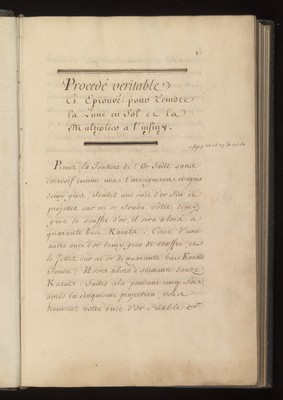 1
Procedé veritable
Et Eprouvé pour Teindre
la Lune en Sol et la
Multiplier a l'infiny.
Prenez la Teinture de l'Or faite sans
corrosif comme nous l'enseignerons cy apres
demy gros, fondez une once d'or fin et
projettez sur cet or fondu votre demy
gros de souffre d'or, il sera alors a
quarante huit Karats. Prenez d'une
autre once d'or demy gros de souffre, et
le Jettez sur cet or de quarante huit Karats
fondu; Il sera alors a soixante douze
Karats. Faites cela pendant cinq fois,
après la cinquieme projection, vous
trouverez votre once d'or friable, et